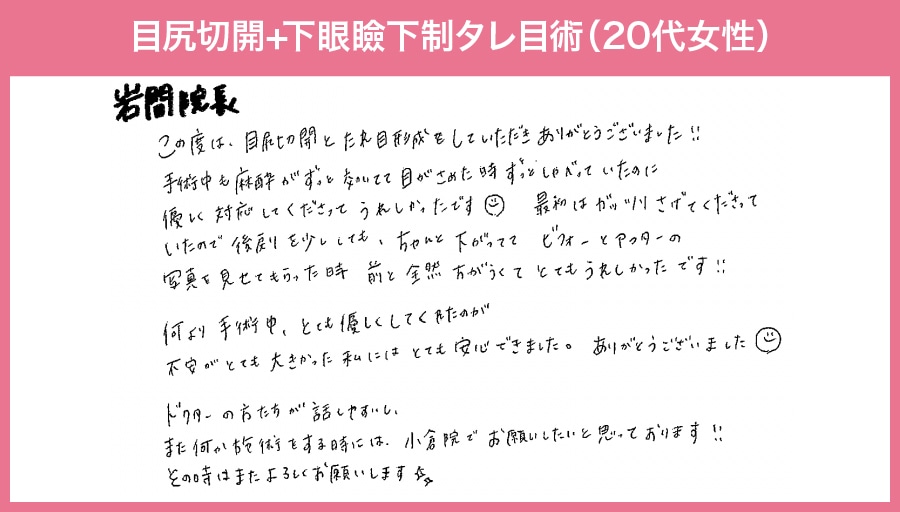 目尻切開+下眼瞼下制タレ目術(20代女性)
岩間院長
この度は、目尻切開とたれ目形成をしていただきありがとうございました!!
手術中も麻酔がずっと効いてて目がさめた時ずっとしゃべっていたのに
優しく対応してくださってうれしかったです☺ 最初はガッツリさげてくださって
いたので後戻りを少ししても、ちゃんと下がってて ビフォーとアフターの
写真を見せてもらった時 前と全然ちがくてとてもうれしかったです!!
何より手術中、とても優しくしてくれたのが
不安がとても大きかった私にはとても安心できました。ありがとうございました☺
ドクターの方たちが話しやすいし、
また何か施術をする時には、小倉院でお願いしたいと思っております!!
その時はまたよろしくお願いします☆